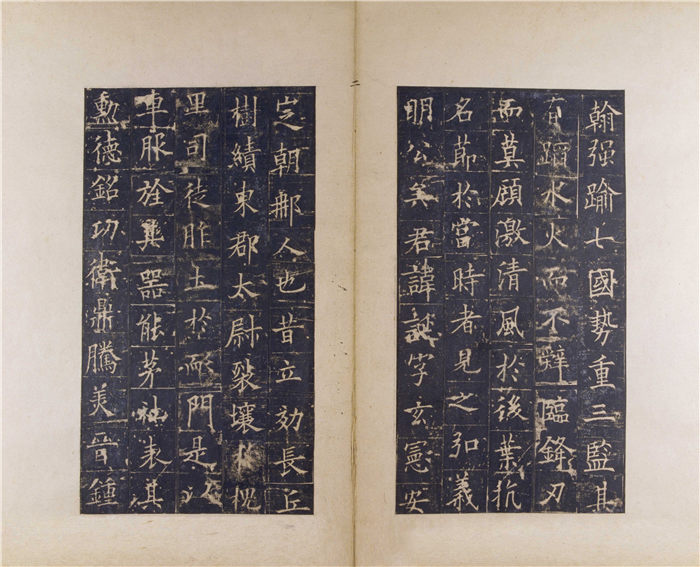 翰强踰七國勢重三監其
有蹈水火而不辭臨鋒刃
而莫顧激清風於後葉抗
名節於當時者見之弘義
明公矣君諱誕字玄憲安
二
定朝那人也昔立効長丘
樹績東郡太尉裂壤於槐
里司徒胙土於耏門是以
車服旌其器能茅社表其
勳德銘功衛鼎騰美晉鍾